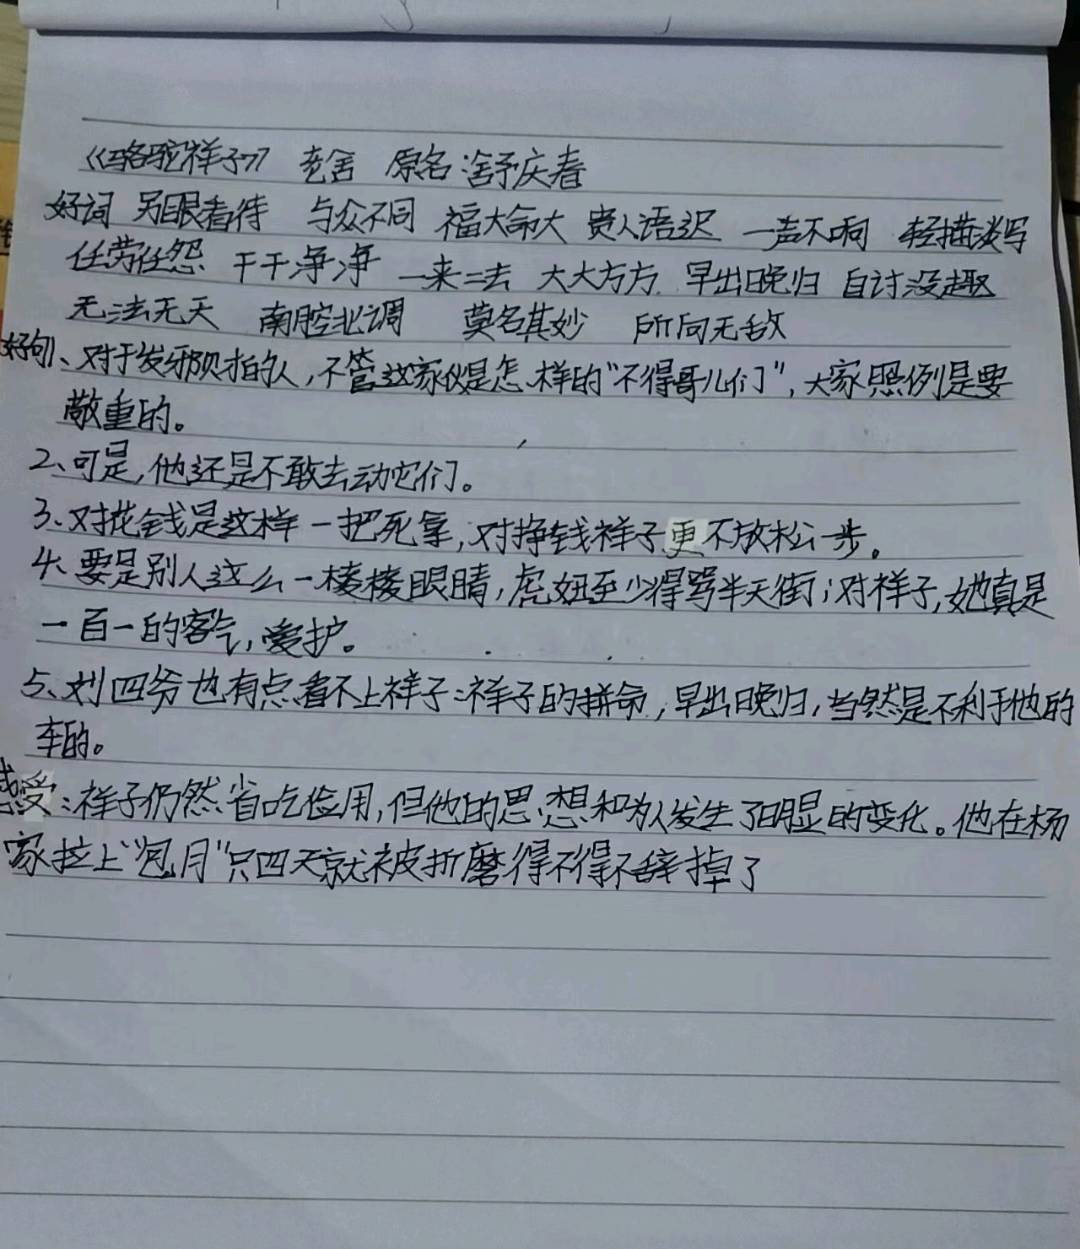 《骆驼祥子》 老舍 原名:舒庆春
好词 另眼看待 与众不同 福大命大 贵人语迟 一声不响 轻描淡写
任劳任怨 干干净净 一来二去 大大方方 早出晚归 自讨没趣
无法无天 南腔北调 莫名其妙 所向无敌
好句1、对于发邪预拍的人,不管这家伙是怎样的"不得哥儿们",大家照例是要
敬重的。
2、可是,他还是不敢去动它们。
3、对花钱是这样一把死拿,对挣钱祥子更不放松一步。
4、要是别人这么一棱棱眼睛,虎妞至少得骂半天街;对祥子,她真是
一百一的客气,爱护。
5、刘四爷也有点看不上祥子:祥子的拼命,早出晚归,当然是不利于他的
车的。
感受:祥子仍然省吃俭用,但他的思想和为人发生了明显的变化。他在杨
家拉上"包月"只四天就被折磨得不得不辞掉了